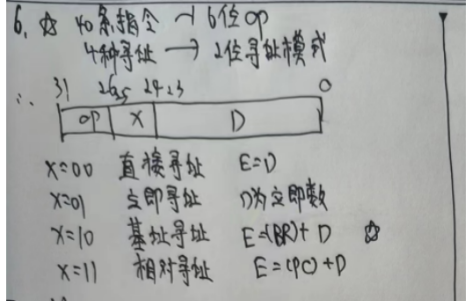 6. ☆ 40条指令 → 6位OP
4种寻址 → 2位寻址模式
∴ 31 26 25 24 23 0
OP X D
X=00 直接寻址 E=D
X=01 立即寻址 D为立即数
X=10 基址寻址 E=(BR)+D ☆
X=11 相对寻址 E=(PC)+D